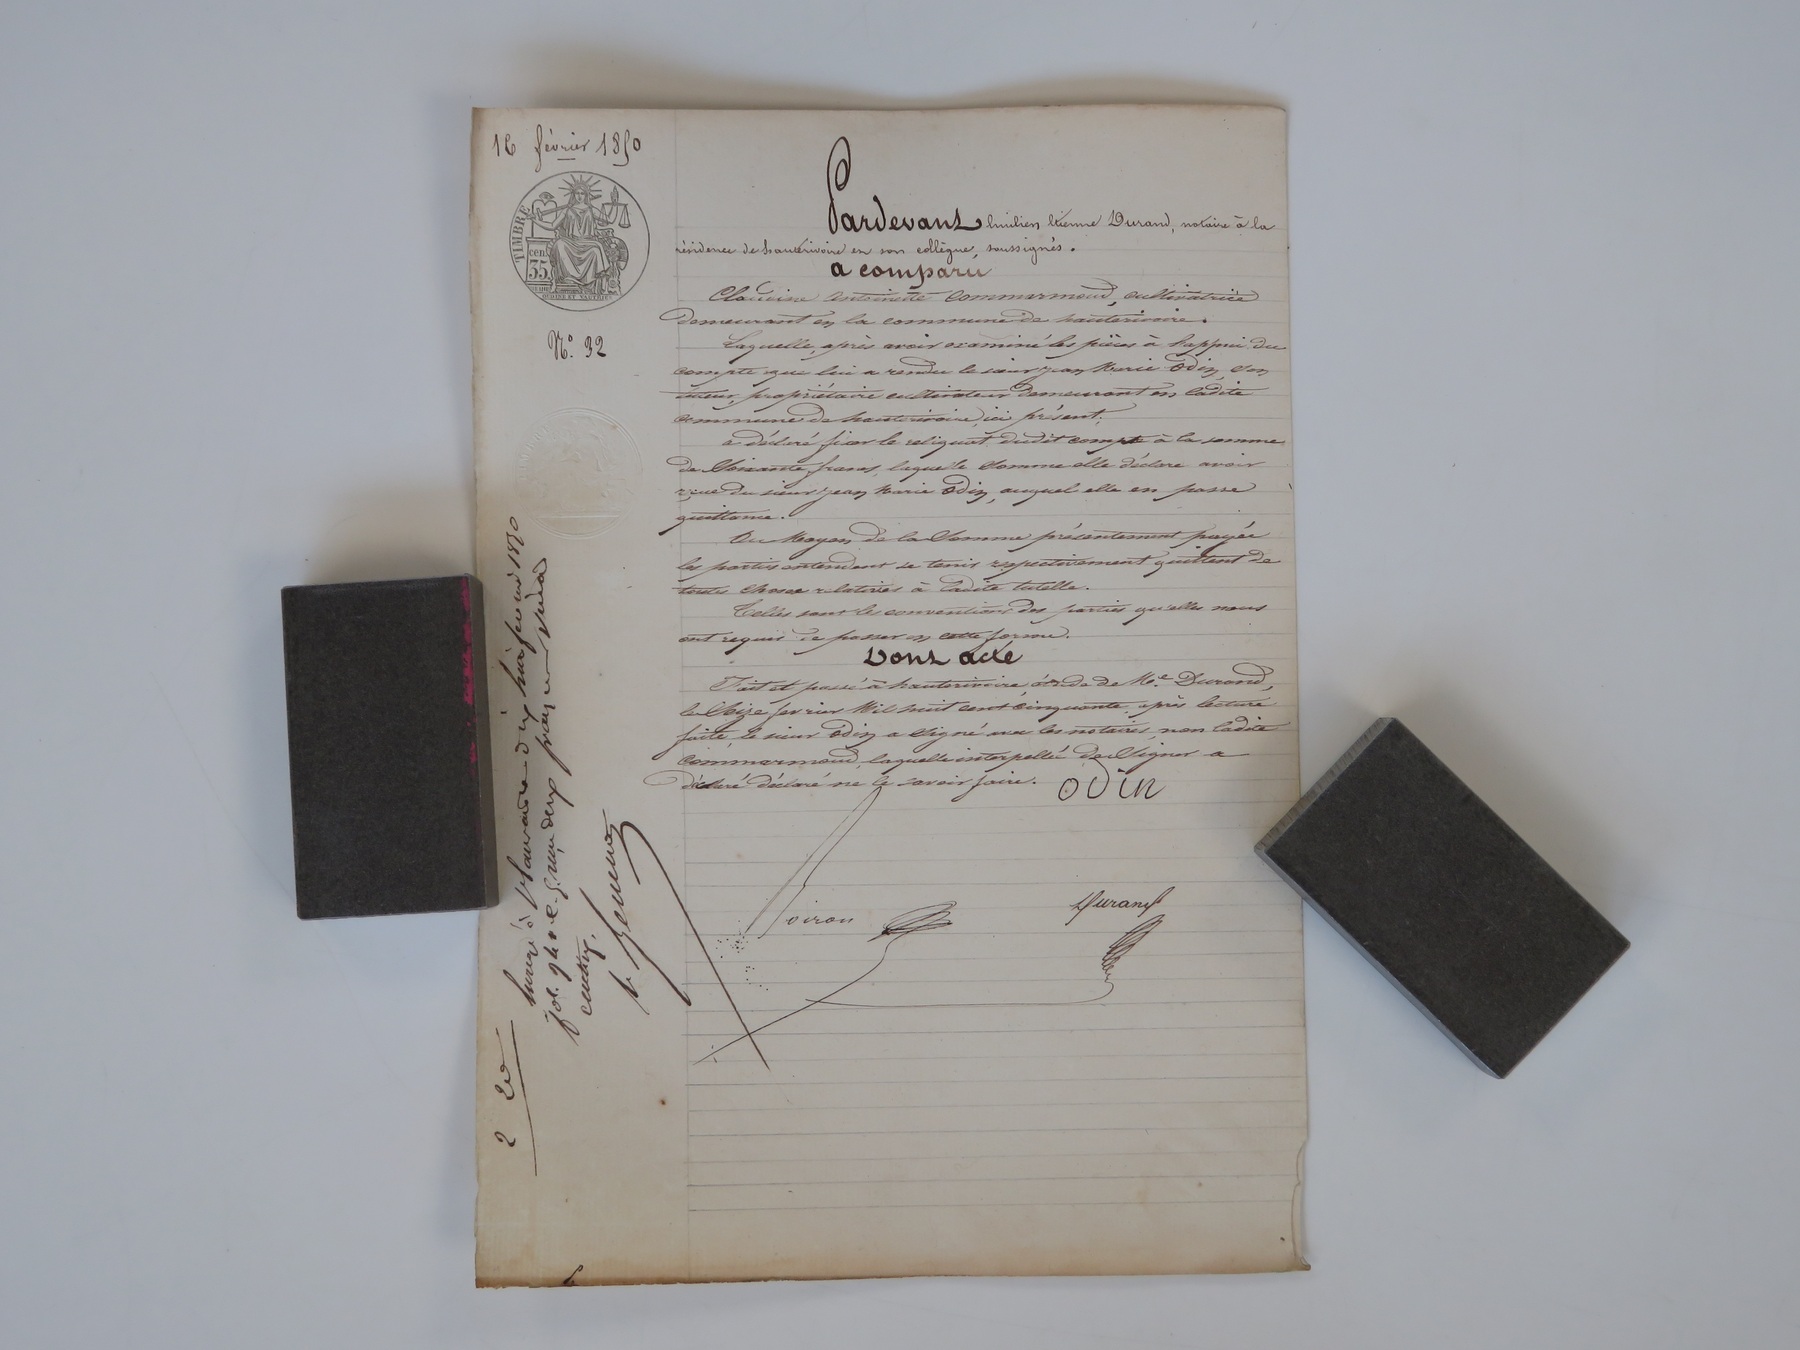 16 février 1850
TIMBRE
cen.
35
N.° 32
Pardevant Emilien Etienne Durand, notaire à la
résidence de hauterivoire en son collègue, soussignés.
a comparu
Claudine Antoinette Commarmond, cultivatrice
demeurant en la commune de hauterivoire.
Laquelle, après avoir examiné les pièces à l'appui du
compte que lui a rendu le sieur jean Marie Odin, son
tuteur, propriétaire cultivateur demeurant en ladite
commune de hauterivoire, ici présent;
a déclaré fixer le reliquat dudit compte à la somme
de Soixante francs, laquelle Somme elle déclare avoir
reçue du sieur jean Marie Odin, auquel elle en passe
quittance.
Au Moyen de la Somme présentement payée
les parties entendent se tenir respectivement quittent de
toute chose relatives à ladite tutelle.
Telles sont les conventions des parties qu'elles nous
ont requis de passer en cette forme.
Dont acte
Fait et passé à hauterivoire, étude de M.e Durand,
le Seize fevrier Mil huit cent cinquante, après lecture
faite, le sieur Odin a Signé avec les notaires, non ladite
Commarmond, laquelle interpellée de Signer a
déclaré déclaré ne le savoir faire.
odin
Voiron
Durand
fevrier 1850
fol. 94
centimes.
2 20